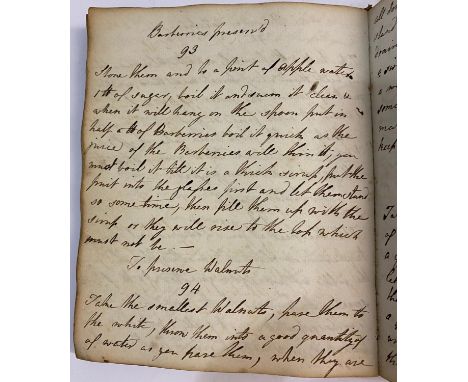 Barberries preserv'd
93
Stone them and to a pint of apple water
1 lb of sugar, boil it and scum it clear &
when it will hang on the spoon put in
half a lb of Barberries boil it quick as the
juice of the Barberries will thin it; you
must boil it till it is a thick sirup, put the
fruit into the glasses first and let them stand
so some time, then fill them up with the
sirup or they will rise to the top which
must not be. —
To preserve Walnuts
94
Take the smallest Walnuts, pare them to
the white, throw them into a good quantity
of water as you pare them, when they are